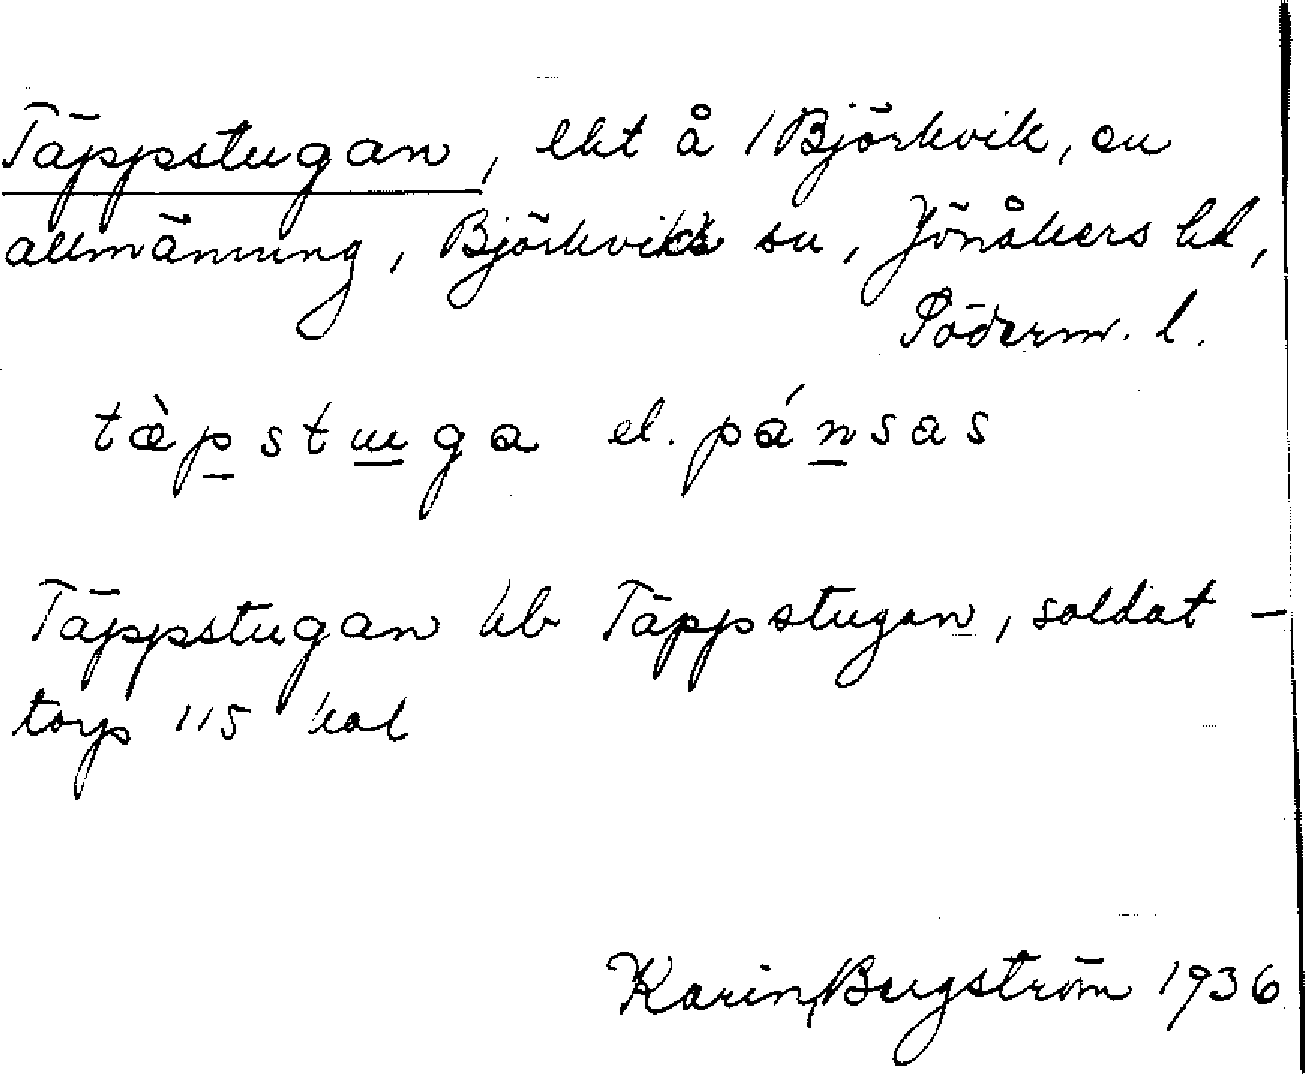 Täppstugan, lht å Björkvik, en
allmänning, Björkviks sn, Jönåkers hd,
Söderm. l.
tæ̀pstɯga el. pánsas
Täppstugan kb Täppstugan, soldat-
torp 115 kal
Karin Bergström 1936